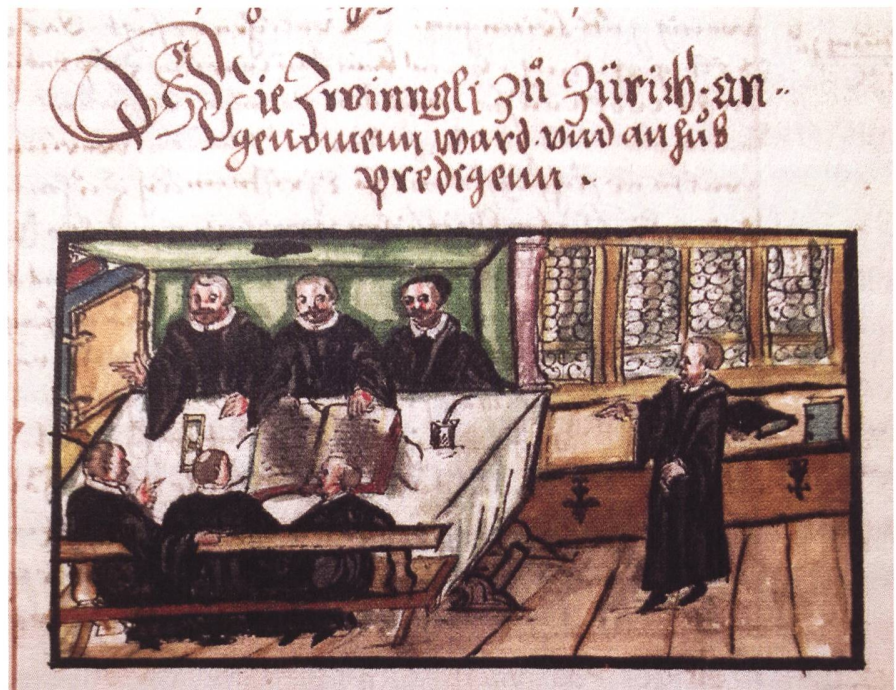 Wie Zwinngli zů Zürich · an-
genomenn ward · vnd anhůb
predigenn ·